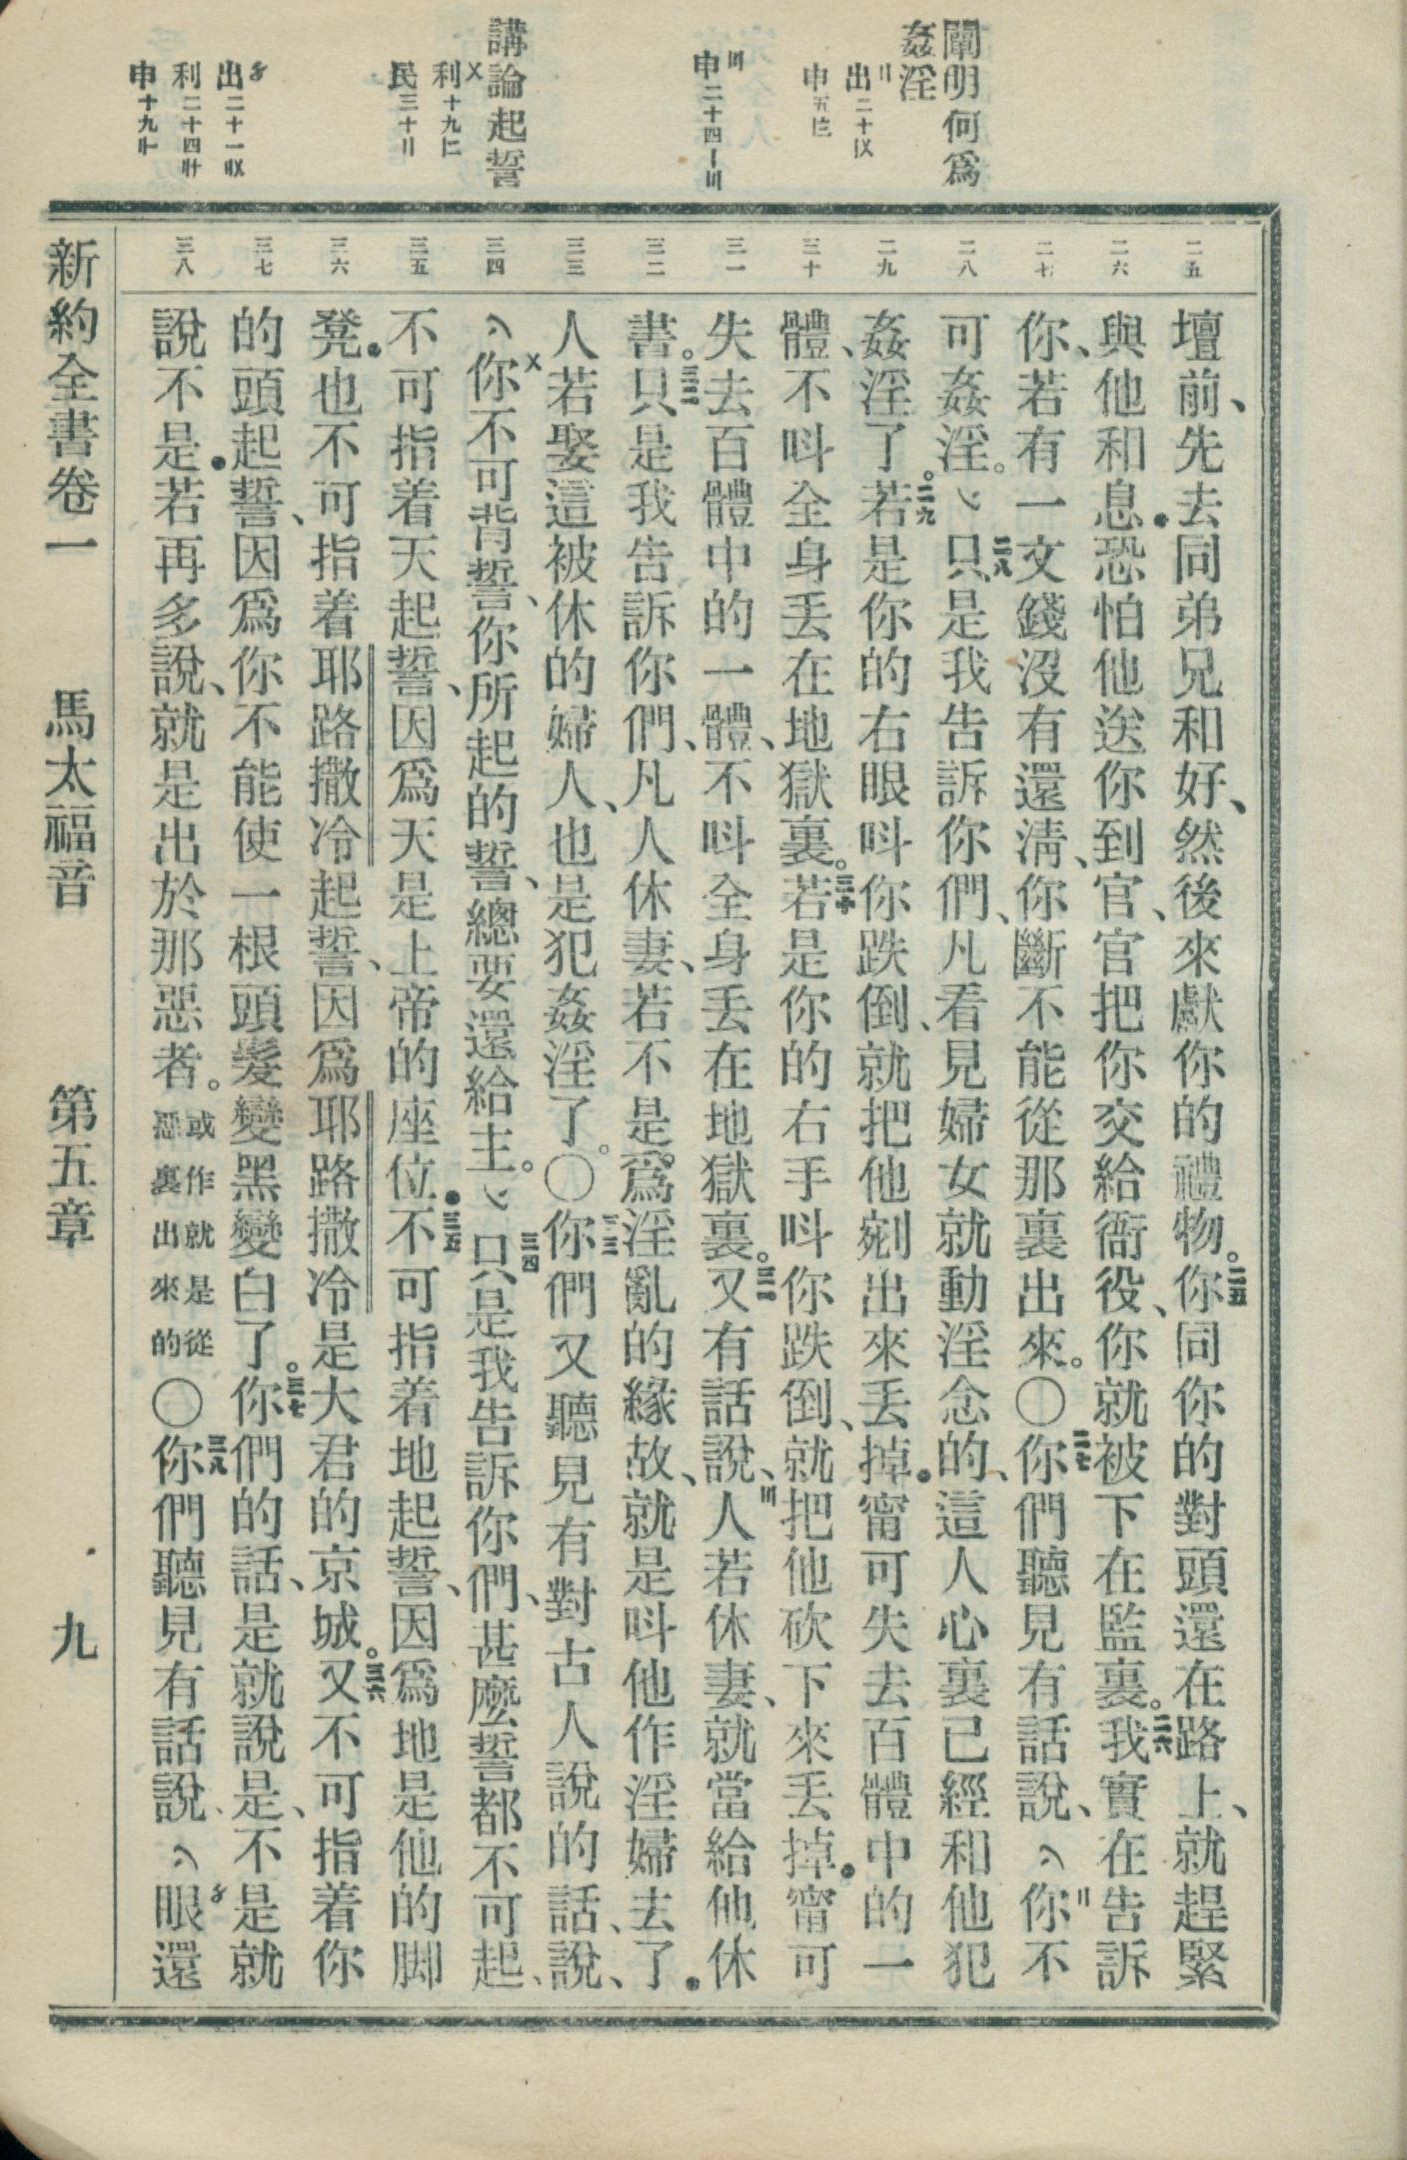 闡明何爲
姦淫
出二十〤
申五〨
申二十四〡〣
講論起誓
利十九〸〢
民三十〢
出二十一
利二十四
申十九
二五 二六 二七 二八 二九 三十 三一 三二 三三 三四 三五 三六 三七 三八
壇前、先去同弟兄和好、然後來獻你的禮物。二五你同你的對頭還在路上、就趕緊
與他和息．恐怕他送你到官、官把你交給衙役、你就被下在監裏。二六我實在告訴
你、若有一文錢沒有還清、你斷不能從那裏出來。〇二七你們聽見有話說、〢你不
可姦淫。二八只是我告訴你們、凡看見婦女就動淫念的、這人心裏已經和他犯
姦淫了。二九若是你的右眼呌你跌倒、就把他剜出來丟掉．甯可失去百體中的一
體、不呌全身丟在地獄裏。三十若是你的右手呌你跌倒、就把他砍下來丟掉．甯可
失去百體中的一體、不呌全身丟在地獄裏。三一又有話說、〣人若休妻、就當給他休
書。三二只是我告訴你們、凡人休妻、若不是爲淫亂的緣故、就是呌他作淫婦去了．
人若娶這被休的婦人、也是犯姦淫了。〇三三你們又聽見有對古人說的話、說、
〤你不可背誓、你所起的誓、總要還給主。三四只是我告訴你們、甚麽誓都不可起、
不可指着天起誓、因爲天是上帝的座位．三五不可指着地起誓、因爲地是他的脚
凳．也不可指着耶路撒冷起誓、因爲耶路撒冷是大君的京城。三六又不可指着你
的頭起誓、因爲你不能使一根頭髮變黑變白了。三七你們的話、是就說是、不是就
說不是．若再多說、就是出於那惡者。或作就是從惡裏出來的〇三八你們聽見有話說、〥眼還
新約全書卷一 馬太福音 第五章 九